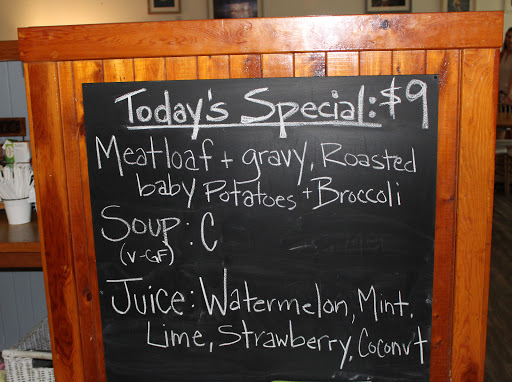 Today's Special: $9
Meatloaf + gravy, Roasted
baby Potatoes + Broccoli
Soup: C
(V-GF)
Juice: Watermelon, Mint,
Lime, Strawberry, Coconut